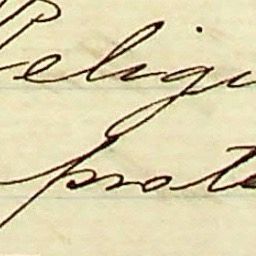 Religi
prote